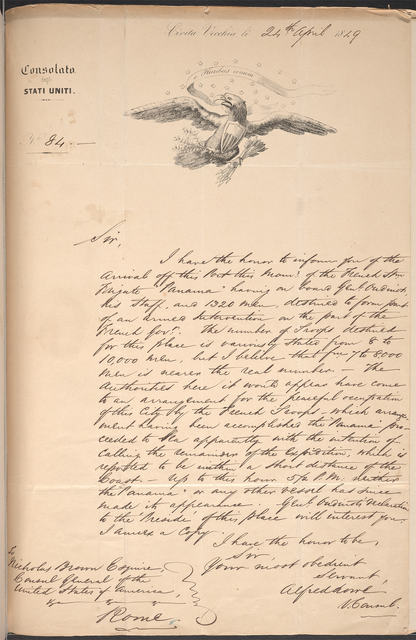 Civita Vecchia li 24th April 1849
Consolato
degli
STATI UNITI.
No. 84.
Pluribus unum
Sir,
I have the honor to inform you of the
arrival off this Port this Morng. of the French Stm
Frigate "Panama" having on board Genl. Oudinot
his Staff, and 1320 men, destined to form part
of an armed Intervention on the part of the
French Govt. The number of Troops destined
for this place is variously stated from 8 to
10,000 men, but I believe that from 7 to 8000
men is nearer the real number – The
Authorities here it would appear have come
to an arrangement for the peaceful occupation
of this City by the French Troops – which arrange
ment having been accomplished the "Panama" pro-
ceeded to Sea apparently with the intention of
calling the remainder of the Expedition, which is
reported to be within a short distance of the
Coast. – Up to this hour 5/2 P.M. neither
the "Panama" or any other vessel has since
made its appearance. Genl. Oudinot's declaration
to the Preside of this place will interest you.
I annex a Copy.
I have the honor to be,
Sir,
Your most obedient
Servant,
Alfred Lowe
V. Consul.
To
Nicholas Brown Esquire,
Consul General of the
United States of America,
Rome